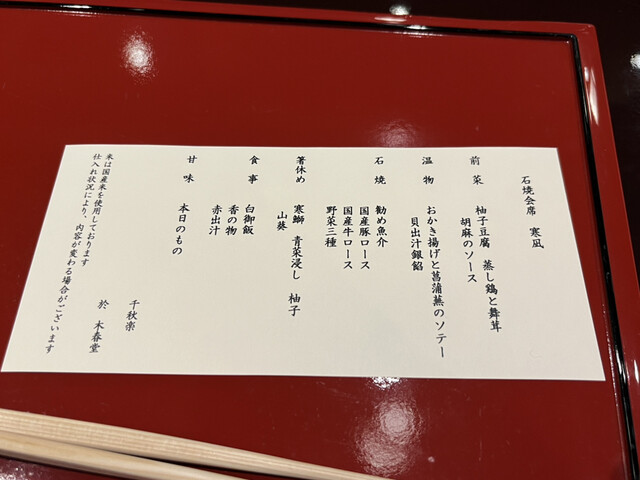 石焼会席 寒凪
前菜 柚子豆腐 蒸し鶏と舞茸
胡麻のソース
温物 おかき揚げと菖蒲蕪のソテー
貝出汁銀餡
石焼 勧め魚介
国産豚ロース
国産牛ロース
野菜三種
箸休め 寒鰤 青菜浸し 柚子
山葵
食事 白御飯
香の物
赤出汁
甘味 本日のもの
千秋楽
於 木春堂
米は国産米を使用しております
仕入れ状況により、内容が変わる場合がございます